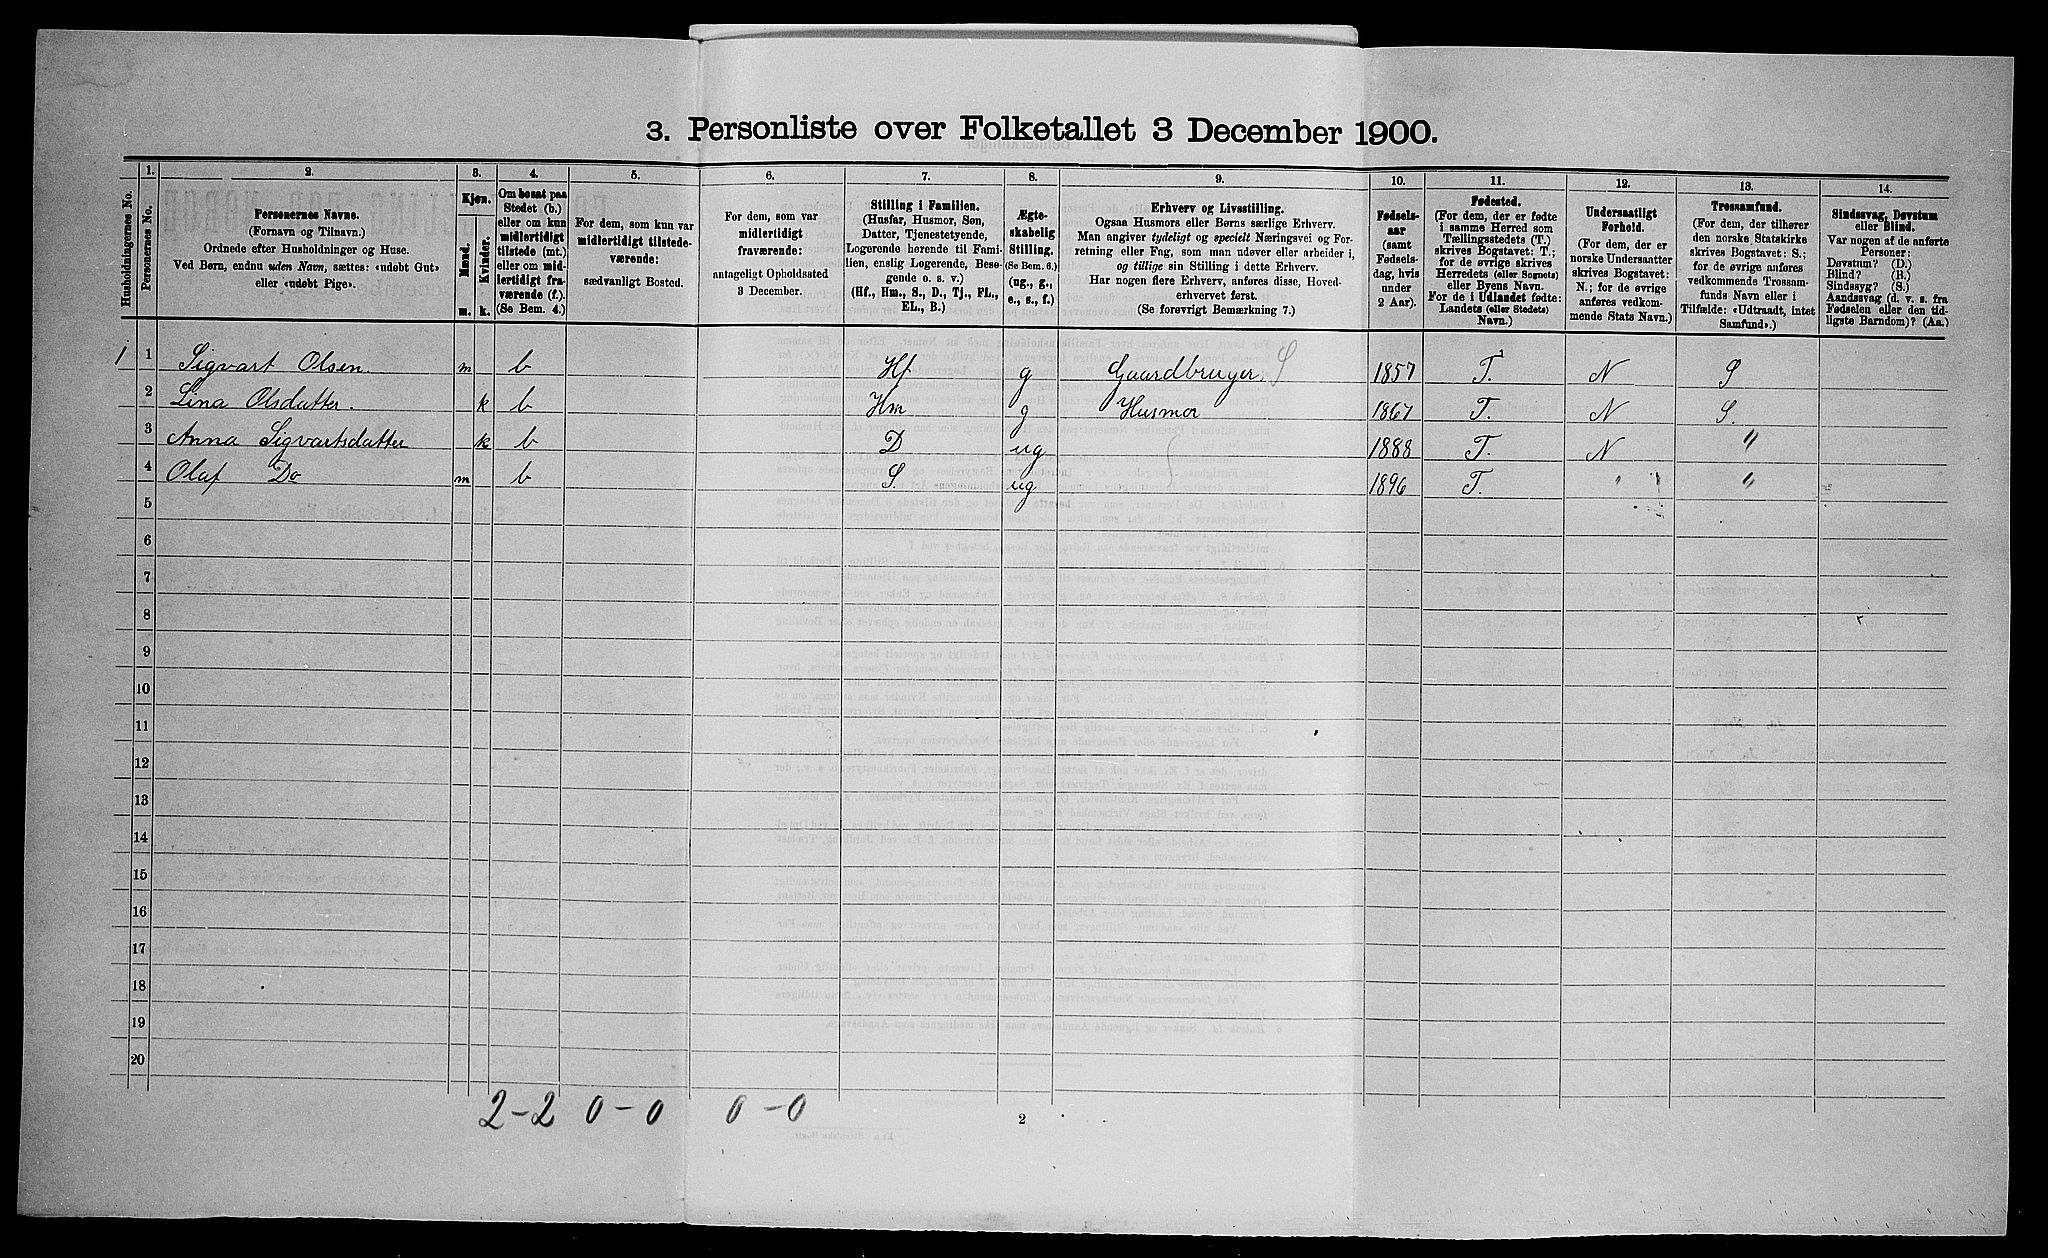 3. Personliste over Folketallet 3 December 1900.
1. 2. 3. 4. 5. 6. 7. 8. 9. 10. 11. 12. 13. 14.
Husholdningernes No.
Personernes No.
Personernes Navne.
(Fornavn og Tilnavn.)
Ordnede efter Husholdninger og Huse.
Ved Børn, endnu uden Navn, sættes: «udøbt Gut»
eller «udøbt Pige».
Kjøn.
Mænd.
Kvinder.
m. k.
Om bosat paa
Stedet (b.)
eller om kun
midlertidigt
tilstede (mt.)
eller om mid-
lertidigt fra-
værende (f.).
(Se Bem. 4.)
For dem, som kun var
midlertidigt tilstede-
værende:
sædvanligt Bosted.
For dem, som var
midlertidigt
fraværende:
antageligt Opholdssted
3 December.
Stilling i Familien.
(Husfar, Husmor, Søn,
Datter, Tjenestetyende,
Logerende hørende til Fami-
lien, enslig Logerende, Besø-
gende o. s. v.)
(Hf., Hm., S., D., Tj., FL.,
EL., B.)
Ægte-
skabelig
Stilling.
(Se Bem. 6.)
(ug., g.,
e., s., f.)
Erhverv og Livsstilling.
Ogsaa Husmors eller Børns særlige Erhverv.
Man angiver tydeligt og specielt Næringsvei og For-
retning eller Fag, som man udøver eller arbeider i,
og tillige sin Stilling i dette Erhverv.
Har nogen flere Erhverv, anføres disse, Hoved-
erhvervet først.
(Se forøvrigt Bemærkning 7.)
Fødsels-
aar
(samt
Fødsels-
dag, hvis
under
2 Aar).
Fødested.
(For dem, der er fødte
i samme Herred som
Tællingsstedets (T.)
skrives Bogstavet: T.;
for de øvrige skrives
Herredets (eller Sognets)
eller Byens Navn.
For de i Udlandet fødte:
Landets (eller Stedets)
Navn.)
Undersaatligt
Forhold.
(For dem, der er
norske Undersaatter
skrives Bogstavet:
N.; for de øvrige
anføres vedkom-
mende Stats Navn.)
Trossamfund.
(For dem, der tilhører
den norske Statskirke
skrives Bogstavet: S.;
for de øvrige anføres
vedkommende Trossam-
funds Navn eller i
Tilfælde: «Udtraadt, intet
Samfund».)
Sindssvag, Døvstum
eller Blind.
Var nogen af de anførte
Personer:
Døvstum? (D.)
Blind? (B.)
Sindssyg? (S.)
Aandssvag (d. v. s. fra
Fødselen eller den tid-
ligste Barndom)? (Aa.)
1 1 Sigvart Olsen. m b Hf g Gaardbruger. S 1857 T. N S
2 Lina Olsdatter. k b Hm g Husmor 1867 T. N S.
3 Anna Sigvartsdatter k b D ug 1888 T. N "
4 Olaf Do m b S. ug 1896 T. " "
5
6
7
8
9
10
11
12
13
14
15
16
17
18
19
20
2-2 0-0 0-0
2